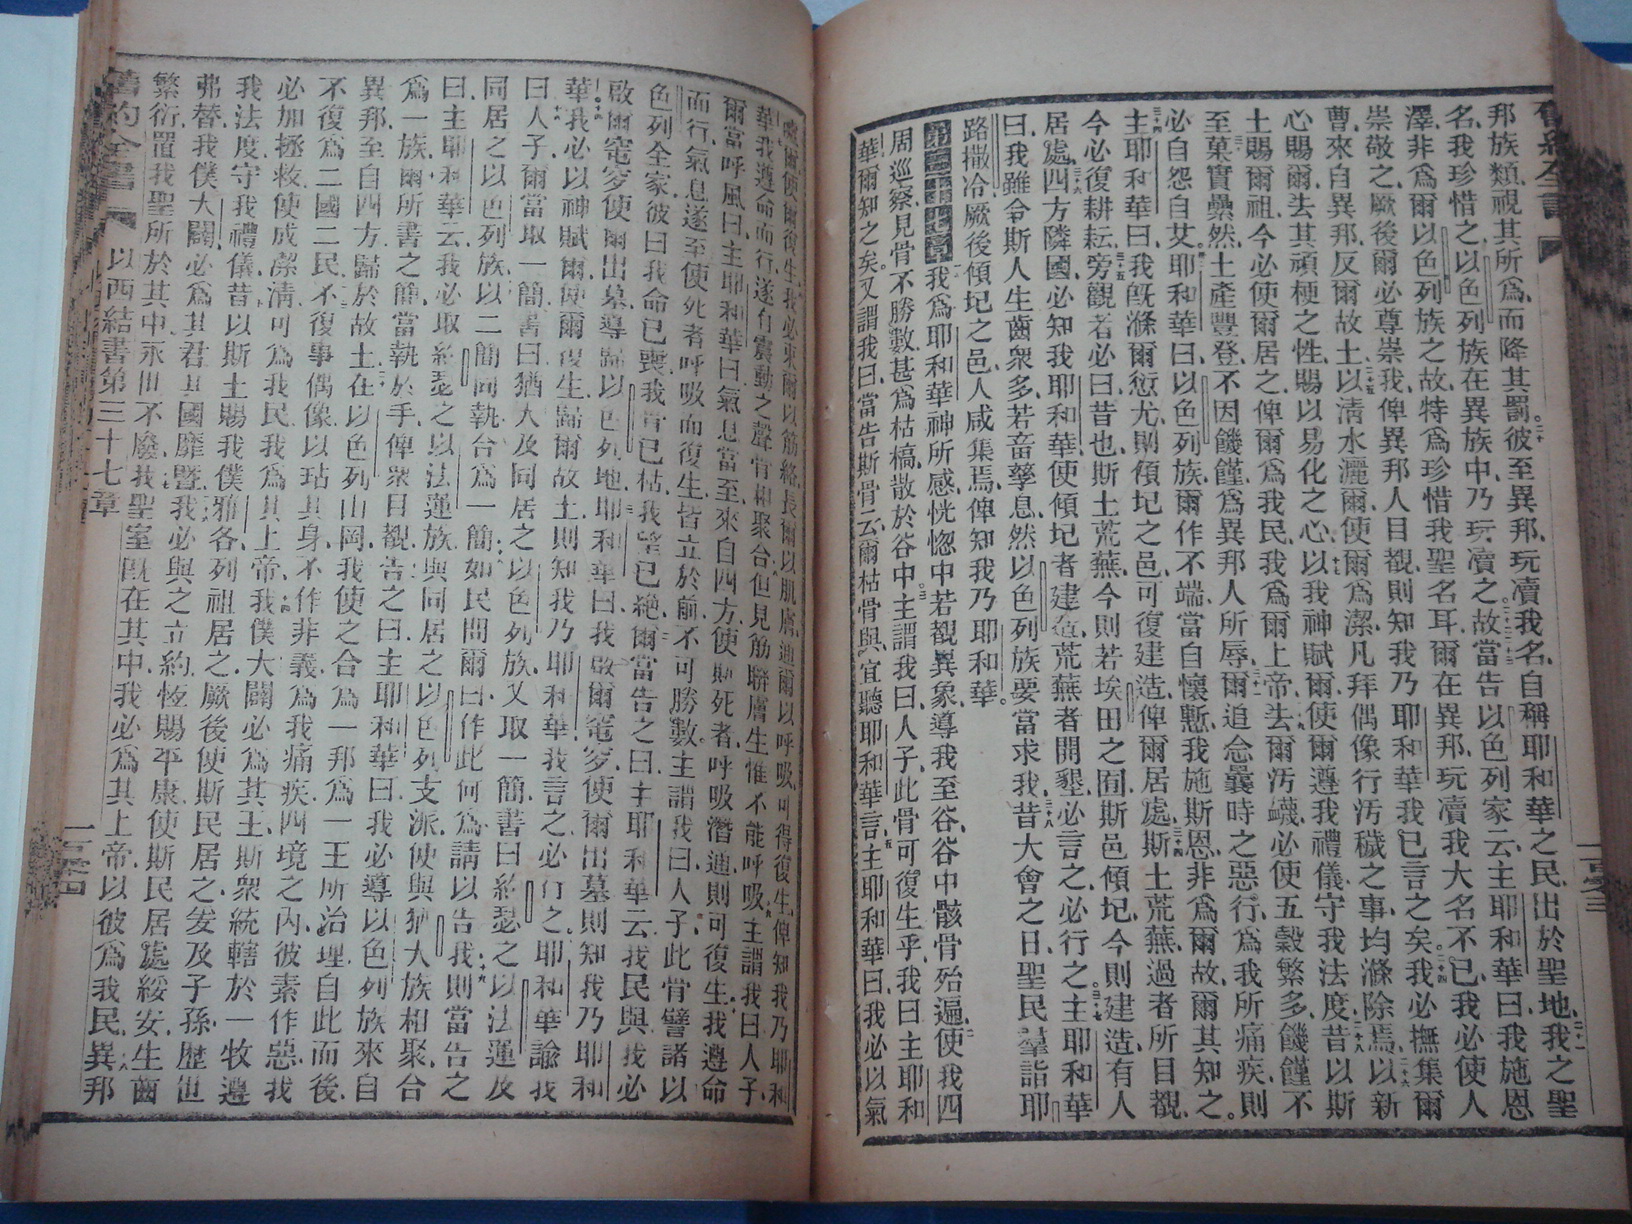 舊約全書
邦族類視其所爲而降其罰彼至異邦玩瀆我名自稱耶和華之民出於聖地我之聖
名我珍惜之以色列族在異族中乃玩瀆之故當告以色列家云主耶和華曰我施恩
澤非爲爾以色列族之故特爲珍惜我聖名耳爾在異邦玩瀆我大名不已我必使人
崇敬之厥後爾必尊崇我俾異邦人目覩則知我乃耶和華我已言之矣我必撫集爾
曹來自異邦反爾故土以清水灑爾使爾爲潔凡拜偶像行汚穢之事均滌除焉以新
心賜爾去其頑梗之性賜以易化之心以我神賦爾使爾遵我禮儀守我法度昔以斯
土賜爾祖今必使爾居之俾爾爲我民我爲爾上帝去爾汚衊必使五穀繁多饑饉不
至菓實纍然土產豐登不因饑饉爲異邦人所辱爾追念曩時之惡行爲我所痛疾則
必自怨自艾耶和華曰以色列族爾作不端當自懷慙我施斯恩非爲爾故爾其知之
主耶和華曰我旣滌爾愆尤則傾圮之邑可復建造俾爾居處斯土荒蕪過者所目覩
今必復耕耘旁觀者必曰昔也斯土荒蕪今則若埃田之囿斯邑傾圮今則建造有人
居處四方隣國必知我耶和華使傾圮者建造荒蕪者開墾必言之必行之主耶和華
曰我雖令斯人生齒衆多若畜孳息然以色列族要當求我昔大會之日聖民羣詣耶
路撒冷厥後傾圮之邑人咸集焉俾知我乃耶和華
第三十七章我爲耶和華神所感恍惚中若觀異象導我至谷谷中骸骨殆遍使我四
周巡察見骨不勝數甚爲枯槁散於谷中主謂我曰人子此骨可復生乎我曰主耶和
華爾知之矣又謂我曰當告斯骨云爾枯骨與宜聽耶和華言主耶和華曰我必以氣
噓爾使爾復生我必束爾以筋絡長爾以肌膚通爾以呼吸可得復生俾知我乃耶和
華我遵命而行遂有震動之聲骨相聚合但見筋聯膚生惟不能呼吸主謂我曰人子
爾當呼風曰主耶和華曰氣息當至來自四方使此死者呼吸潛通則可復生我遵命
而行氣息遂至使死者呼吸而復生皆立於前不可勝數主謂我曰人子此骨譬諸以
色列全家彼曰我命已喪我骨已枯我望已絕爾當告之曰主耶和華云我民與我必
啟爾窀穸使爾出墓導歸以色列地耶和華曰我啟爾窀穸使爾出墓則知我乃耶和
華我必以神賦爾使爾復生歸爾故土則知我乃耶和華我言之必行之耶和華諭我
曰人子爾當取一簡書曰猶大及同居之以色列族又取一簡書曰約瑟之以法蓮及
同居之以色列族以二簡同執合爲一簡如民問爾曰作此何爲請以告我則當告之
曰主耶和華云我必取約瑟之以法蓮族與同居之以色列支派使與猶大族相聚合
爲一族爾所書之簡當執於手俾衆目覩告之曰主耶和華曰我必導以色列族來自
異邦至自四方歸於故土在以色列山岡我使之合爲一邦爲一王所治理自此而後
不復爲二國二民不復事偶像以玷其身不作非義爲我痛疾四境之內彼素作惡我
必加拯救使成潔清可爲我民我爲其上帝我僕大闢必爲其王斯衆統轄於一牧遵
我法度守我禮儀昔以斯土賜我僕雅各列祖居之厥後使斯民居之爰及子孫歷世
弗替我僕大闢必爲其君其國靡曁我必與之立約恆賜平康使斯民居處綏安生齒
繁衍置我聖所於其中永世不廢我聖室旣在其中我必爲其上帝以彼爲我民異邦
舊約全書
以西結書第三十七章
一百零四